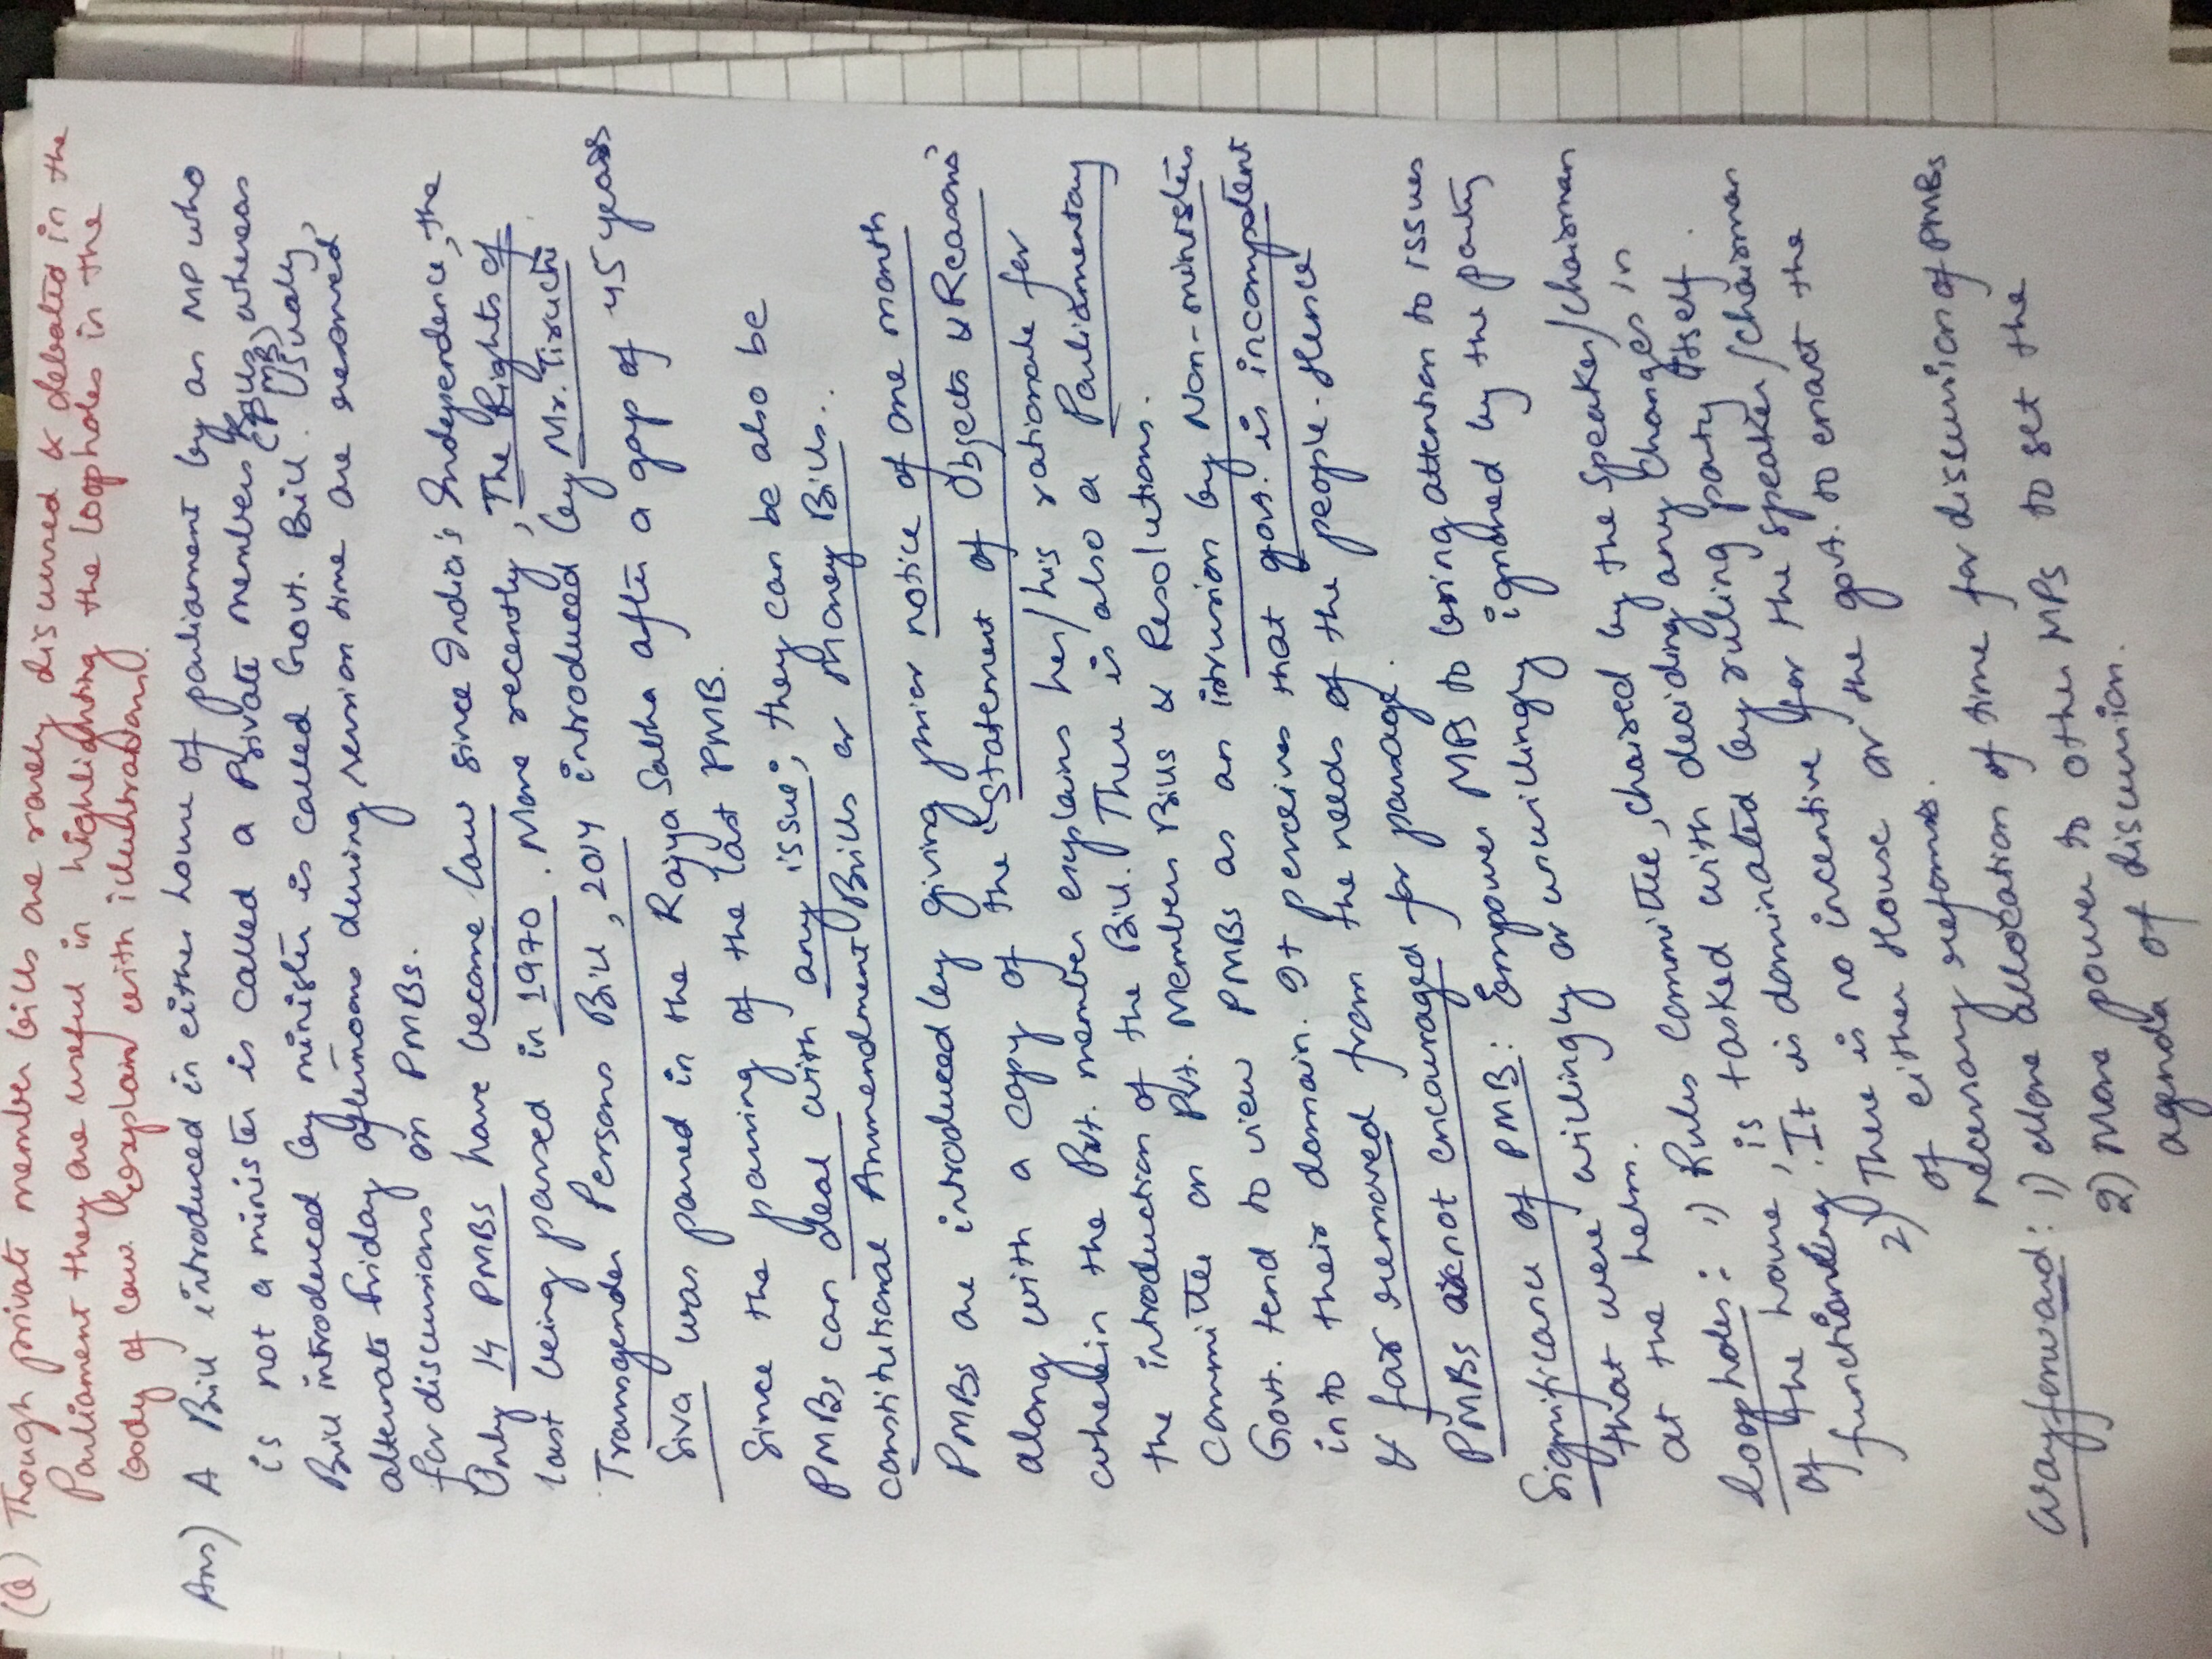 (Q) Though private member bills are rarely discussed & debated in the
Parliament they are useful in highlighting the loopholes in the
body of law. Explain with illustrations.
Ans) A Bill introduced in either house of parliament by an MP who
is not a minister is called a Private members Bills (PMB), whereas
Bill introduced by minister is called Govt. Bill. Usually,
alternate Friday afternoons during session time are reserved
for discussions on PMBs.
Only 14 PMBs have become law since India's Independence, the
last being passed in 1970. More recently, The Rights of
Transgender Persons Bill, 2014 introduced by Mr. Tiruchi
Siva was passed in the Rajya Sabha after a gap of 45 years
Since the passing of the last PMB.
PMBs can deal with any issue; they can be also be
constitutional Ammendment Bills or Money Bills.
PMBs are introduced by giving prior notice of one month
along with a copy of the 'Statement of Objects & Reasons'
wherein the Pvt. member explains her/his rationale for
the introduction of the Bill. There is also a Parliamentary
Committee on Pvt. Members Bills & Resolutions.
Govt. tend to view PMBs as an intrusion by Non-ministers
in to their domain. It perceives that govt. is incompetent
& far removed from the needs of the people. Hence
PMBs are not encouraged for passage.
Significance of PMB: Empower MPs to bring attention to issues
that were willingly or unwillingly ignored by the party
at the helm.
loopholes: 1) Rules committee, chaired by the Speaker/Chairman
of the house, is tasked with deciding any changes in
functioning. It is dominated by ruling party itself.
2) There is no incentive for the speaker/chairman
of either House or the govt. to enact the
necessary reforms.
Wayforward: 1) More allocation of time for discussion of PMBs
2) More power to other MPs to set the
agenda of discussion.